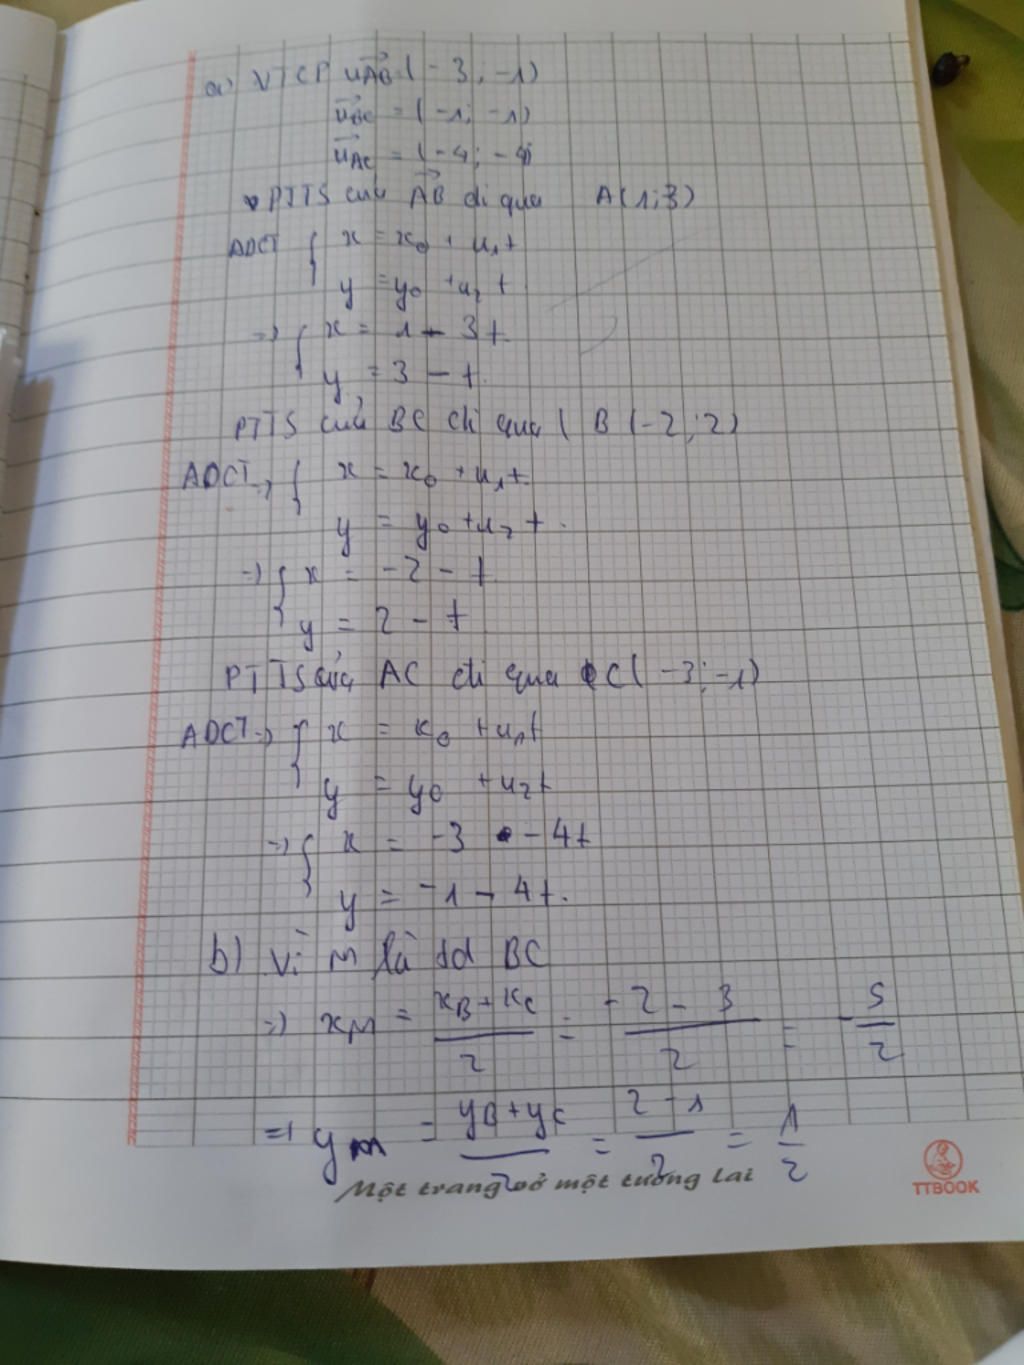 a) VTCP u⃗AB (-3; -1)
u⃗BC = (-1; -1)
u⃗AC = (-4; -4)
PTTS của AB đi qua A(1;3)
ADCT { x = x₀ + u₁t
y = y₀ + u₂ t
=> { x = 1 - 3t
y = 3 - t.
PTTS của BC đi qua ( B (-2; 2)
ADCT => { x = x₀ + u₁t
y = y₀ + u₂ t.
=> { x = -2 - t
y = 2 - t
PTTS của AC đi qua C(-3; -1)
ADCT => { x = x₀ + u₁t
y = y₀ + u₂t
=> { x = -3 - 4t
y = -1 - 4t.
b) Vì M là tđ BC
=> xM = (xB + xC)/2 = (-2 - 3)/2 = -5/2
=> yM = (yB + yC)/2 = (2 - 1)/2 = 1/2
Một trang vở một tương lai
TTBOOK